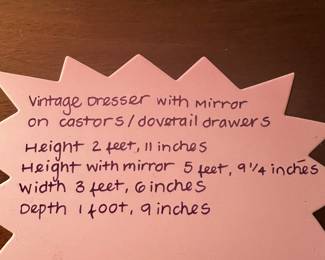 Vintage Dresser with Mirror
on castors/dovetail drawers
Height 2 feet, 11 inches
Height with mirror 5 feet, 9 1/4 inches
Width 3 feet, 6 inches
Depth 1 foot, 9 inches